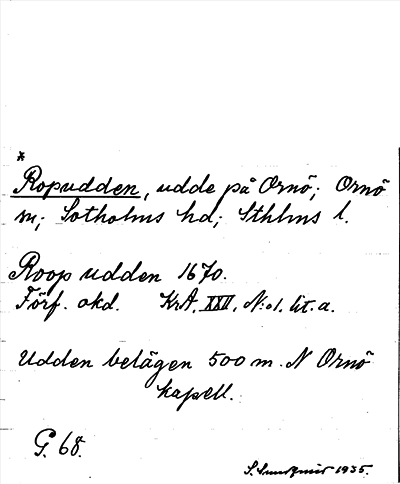 *
Ropudden, udde på Ornö; Ornö
sn; Sotholms hd; Sthlms l.
Roop udden 1670.
Förf. okd. KrA. XXII, N:o1. lit. a.
Udden belägen 500 m. N Ornö
kapell.
G. 68.
1935.